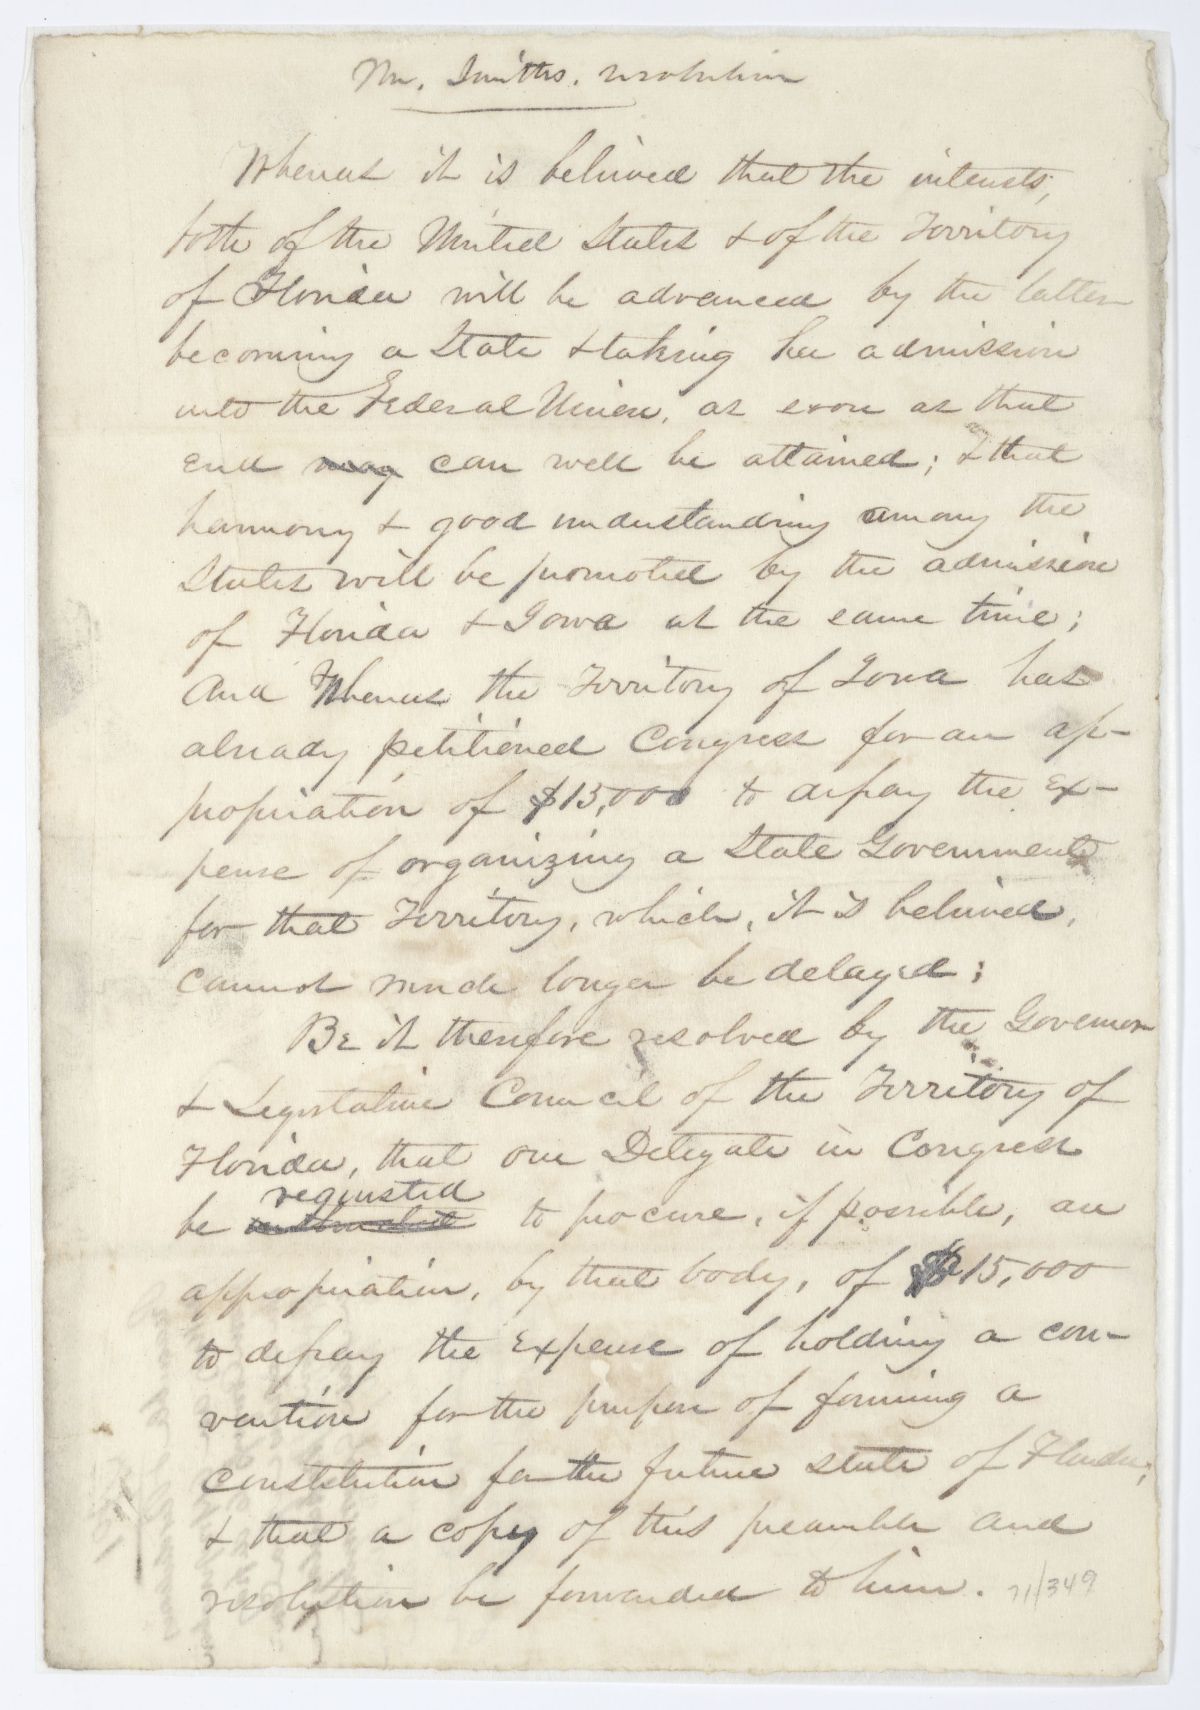 Mr. Smiths. resolution
Whereas it is believed that the interests,
both of the United States & of the Territory
of Florida will be advanced by the latter
becoming a State & taking her admission
into the Federal Union, as soon as that
end may can well be attained; & that
harmony & good understanding among the
States will be promoted by the admission
of Florida & Iowa at the same time;
And Whereas the Territory of Iowa has
already petitioned Congress for an ap-
propriation of $15,000 to defray the ex-
pense of organizing a State Government
for that Territory, which, it is believed,
cannot much longer be delayed;
Be it therefore resolved by the Governor
& Legislative Council of the Territory of
Florida, that our Delegate in Congress
requested
be to procure, if possible, an
appropriation, by that body, of $15,000
to defray the expense of holding a con-
vention for the purpose of forming a
constitution for the future State of Florida;
& that a copy of this preamble and
resolution be forwarded to him. 71/349